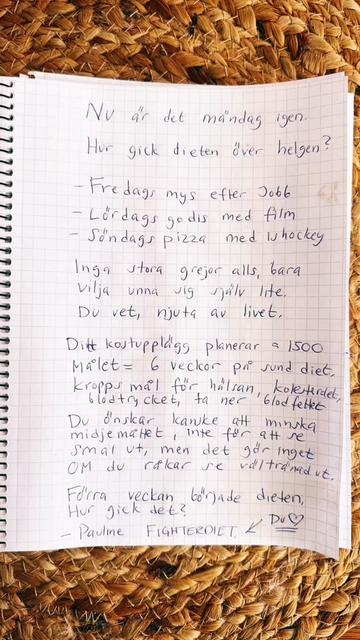 Nu är det måndag igen.
Hur gick dieten över helgen?
- Fredags mys efter Jobb
- Lördags godis med film
- Söndags pizza med ishockey
Inga stora grejor alls, bara
vilja unna sig själv lite.
Du vet, njuta av livet.
Ditt kostupplägg planerar ≈ 1500
Målet = 6 veckor på sund diet.
Kropps mål för hälsan, kolesterolet,
blodtrycket, ta ner blodfettet
Du önskar kanske att minska
midjemåttet, inte för att se
smal ut, men det gör inget
OM du råkar se vältränad ut.
Förra veckan började dieten,
Hur gick det?
- Pauline FIGHTERDIET ↙ Du♡